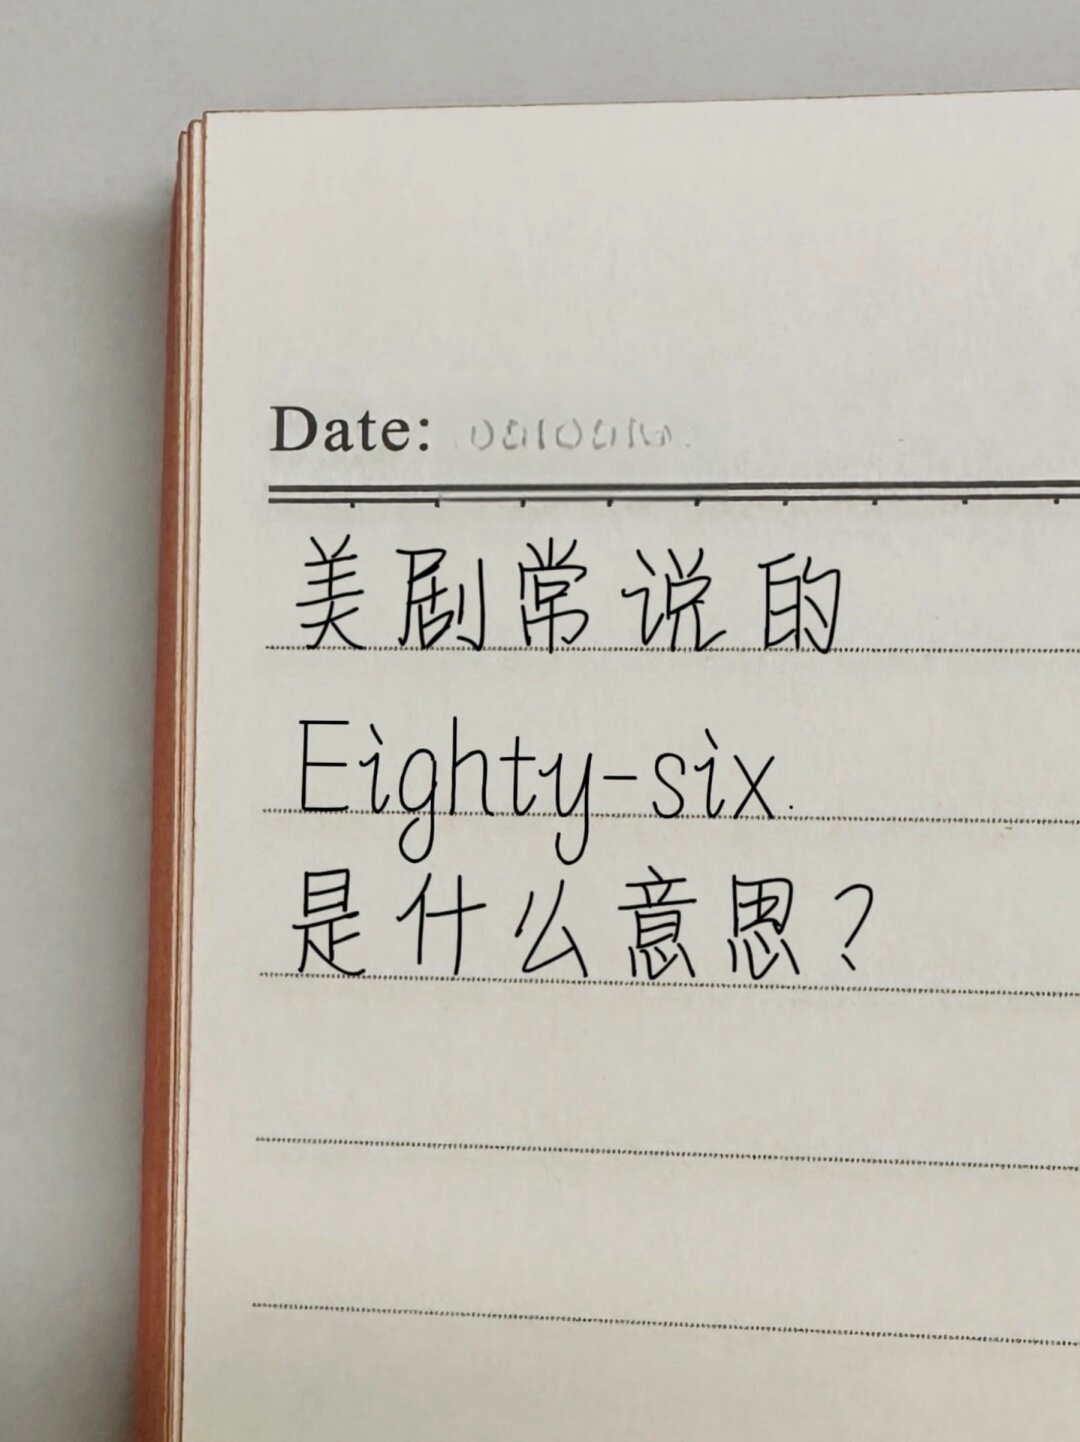 Date:
美剧常说的
Eighty-six.
是什么意思?